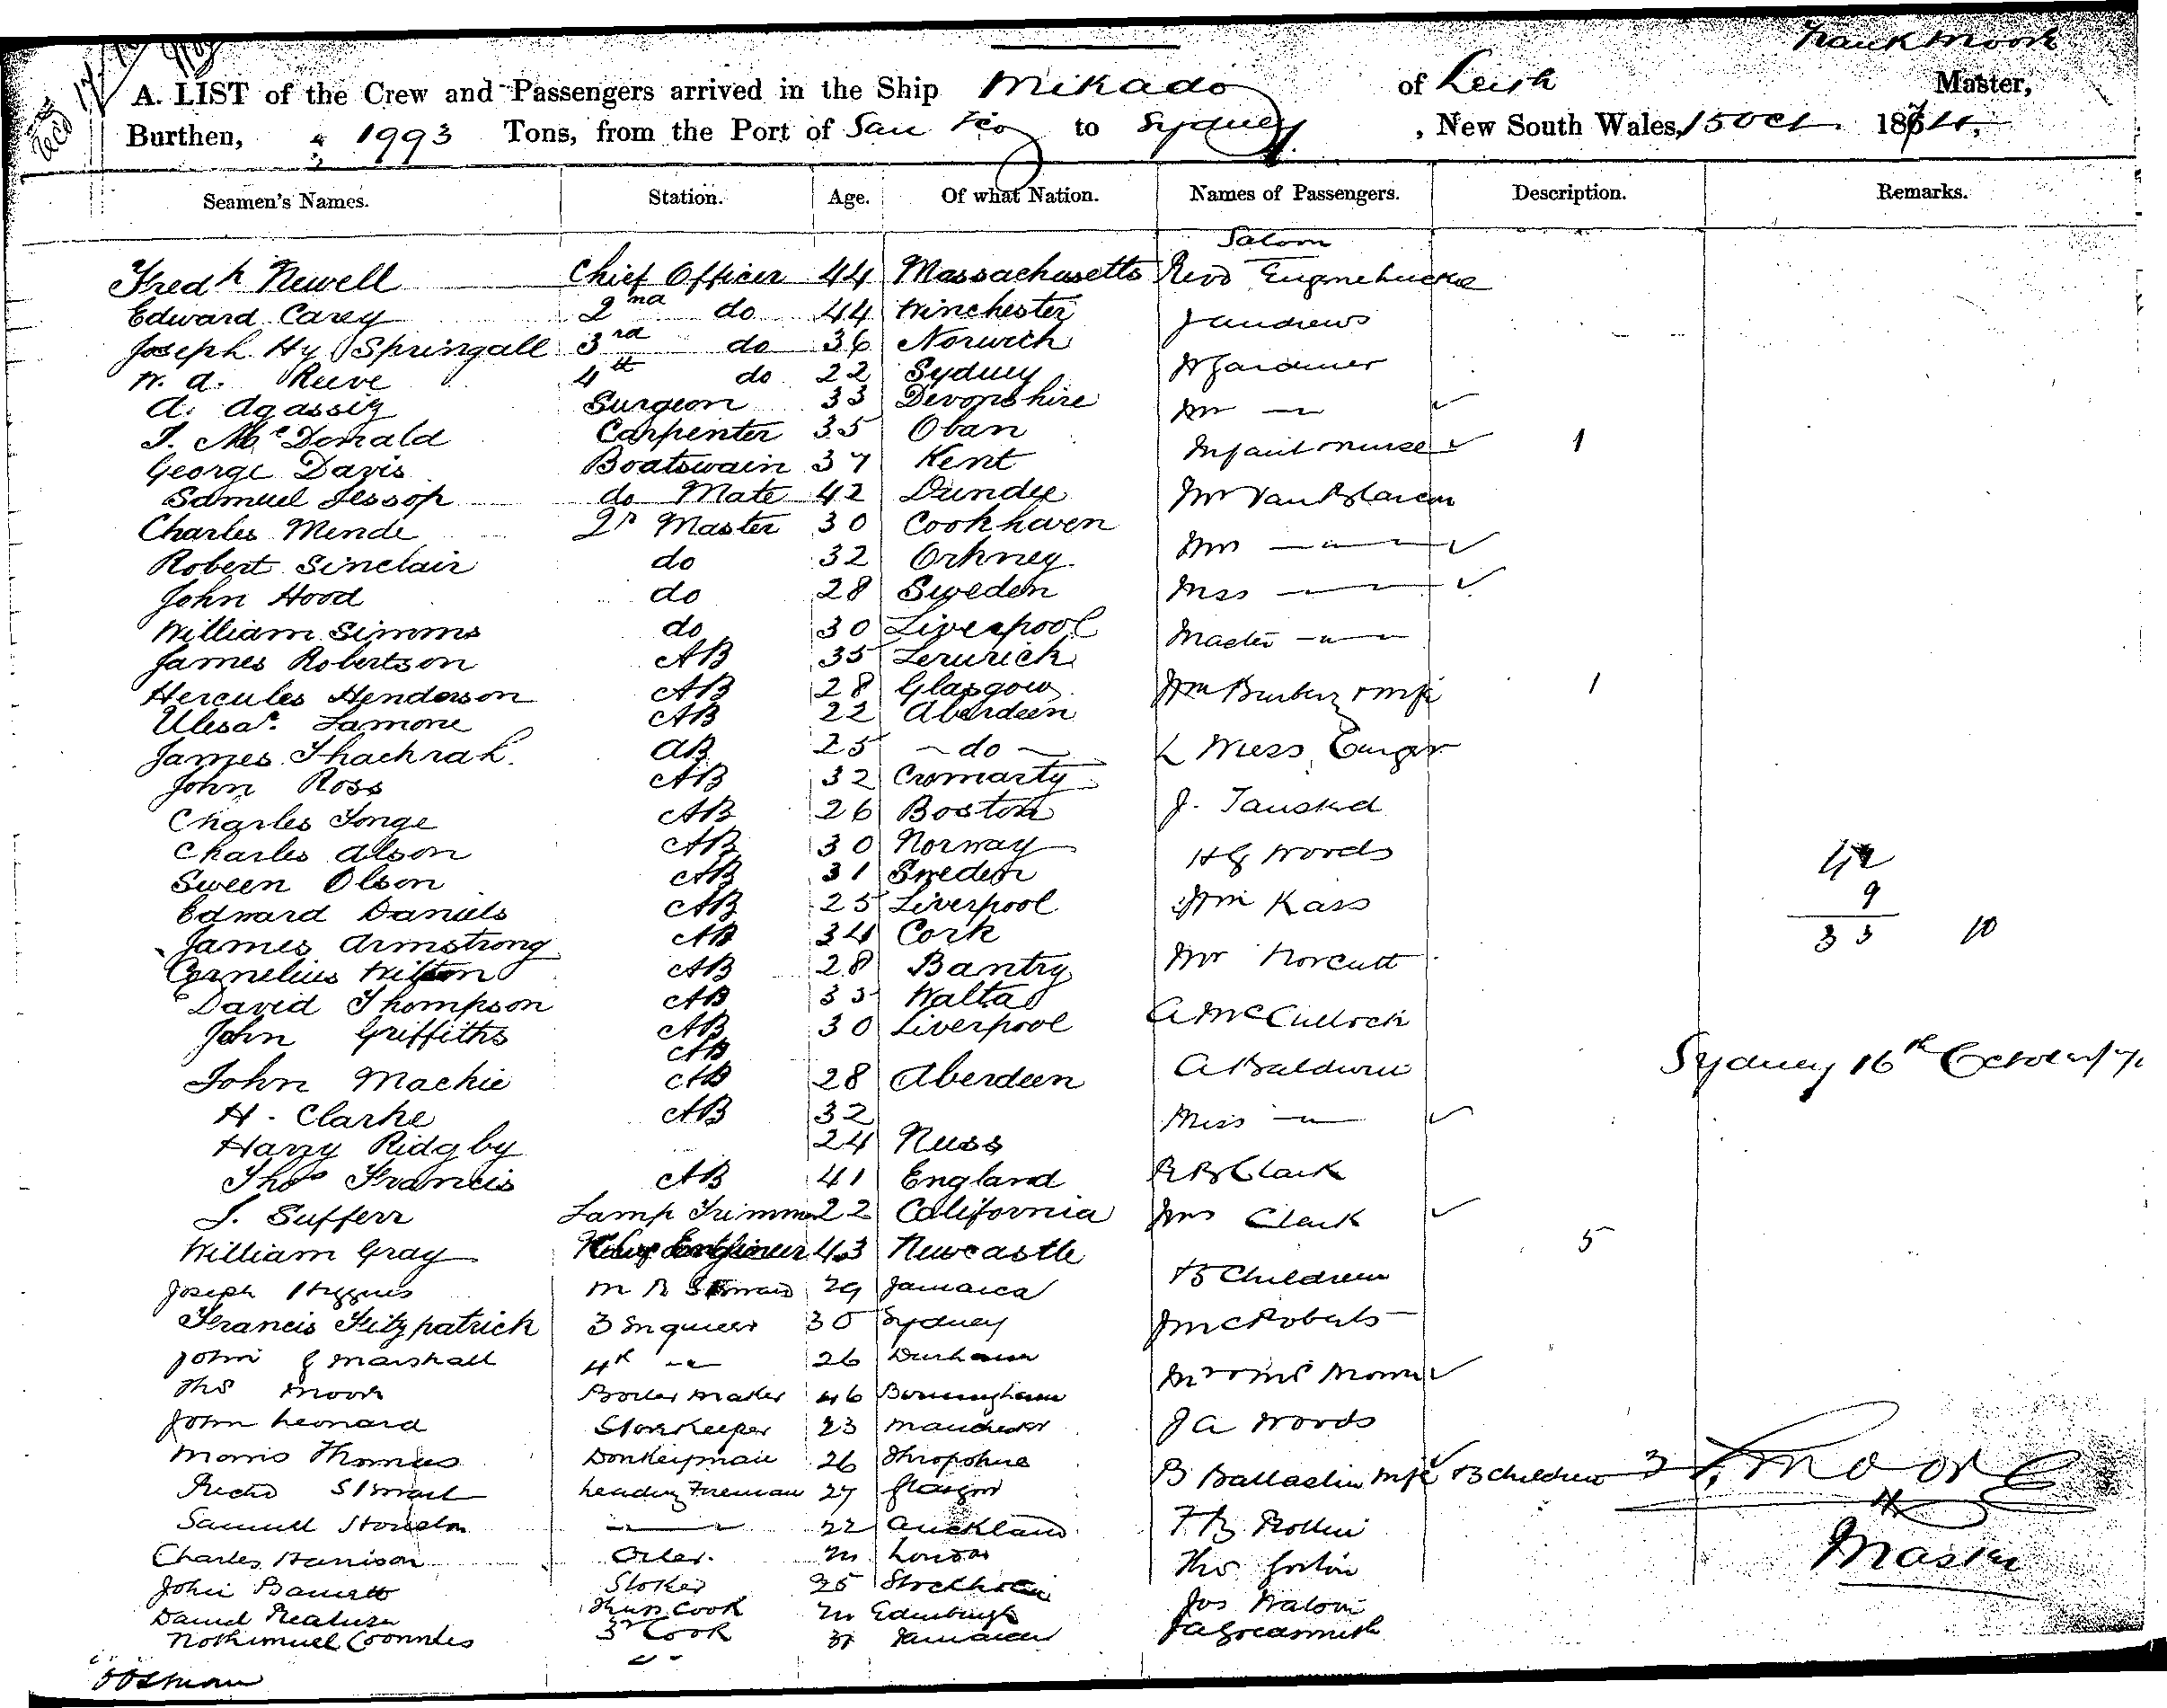 Frank Moore
A. LIST of the Crew and Passengers arrived in the Ship Mikado of Leith Master,
Burthen, 1993 Tons, from the Port of San Fco to Sydney, New South Wales, 15 Oct 1874
Seamen's Names. Station. Age. Of what Nation. Names of Passengers. Description. Remarks.
Saloon
Fredk Newell Chief Officer 44 Massachusetts Revd
Edward Carey 2nd do 44 Winchester J Andrews
Joseph Hy Springall 3rd do 36 Norwich W Gardiner
W. A. Reeve 4th do 22 Sydney
A. Agassiz Surgeon 33 Devonshire Mrs — " — ✓
J. McDonald Carpenter 35 Oban Infant + nurse ✓ 1
George Davis Boatswain 37 Kent
Samuel Jessop do Mate 42 Dundee Mr Van Blarcom
Charles Mende Qr Master 30 Cookhaven Mrs — " — ✓
Robert Sinclair do 32 Orkney
John Hood do 28 Sweden Miss — " — ✓
William Simms do 30 Liverpool Master — " —
James Robertson AB 35 Lerwick
Hercules Henderson AB 28 Glasgow Wm + wife 1
Lamone AB 22 Aberdeen
James Thackrah AB 25 — do — L Wiess
John Ross AB 32 Cromarty
Charles Tonge AB 26 Boston J.
Charles Alson AB 30 Norway H G Woods
Sween Olson AB 31 Sweden 42
Edward Daniels AB 25 Liverpool Wm Kass 9
James Armstrong AB 34 Cork 33 10
Cornelius AB 28 Bantry Mr Norcutt
David Thompson AB 35 Walta
John Griffiths AB 30 Liverpool A McCullock
AB
John Mackie AB 28 Aberdeen A Baldwin Sydney 16th October
H. Clarke AB 32 Miss — " — ✓
Harry Ridgby 24 Russ
Thos Francis AB 41 England R B Clark
J. Sufferr Lamp Trimmer 22 California Mrs Clark ✓
William Gray Engineer 43 Newcastle 5
Joseph Higgins 29 Jamaica + 5 Children
Francis Fitzpatrick 3 Engineer 30 Sydney J McRoberts
John G Marshall 4th — " — 26 Durham
Thos Moore Boiler Maker 46 Birmingham Mr + Mrs ✓
John Leonard Storekeeper 23 Manchester J A Woods
Morris Thomas Donkeyman 26 Shropshire
Richd Leading Fireman 27 Glasgow B wife ✓ + 3 children 3 F Moore
Samuel Houston — " — 22 Auckland F B Rollin
Charles Harrison Oiler. London Master
John Barnett Stoker 25 Stockholm Thos
Daniel Cook Edinburgh Jos
Coombes 3rd Cook Jamaica